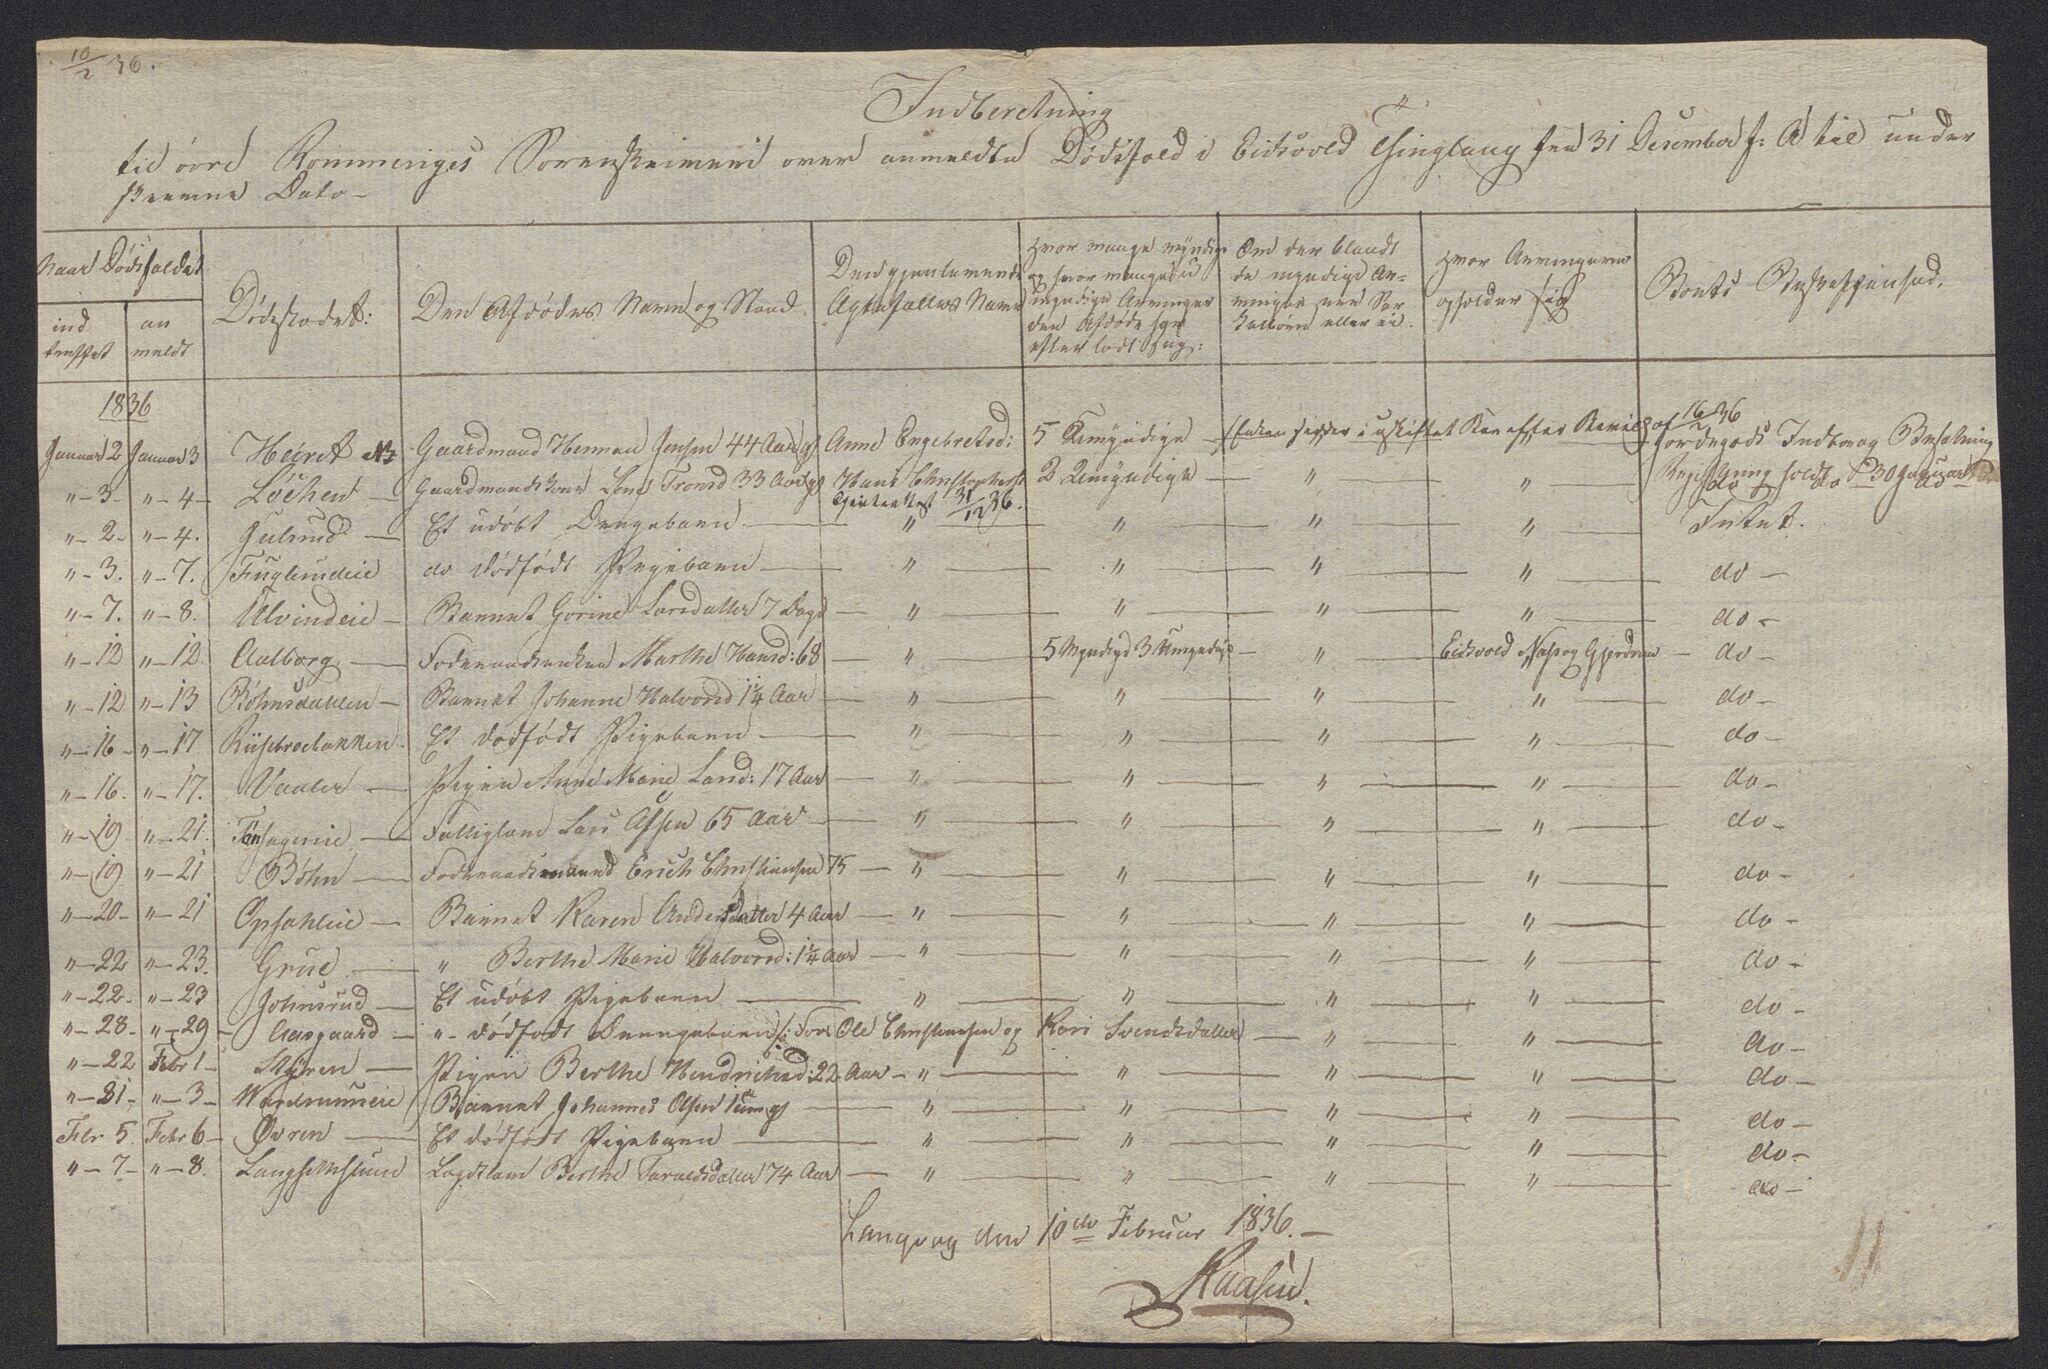 10/2 36.
Indberetning
til övre Rommeriges Sorenskriveri over anmeldte Dødsfald i Eidsvold Thinglaug fra 31 Desember f: A til under
skrevne Dato –
Naar Dödsfaldet
ind
truffet
an
meldt
Dödsstedet:
Den Afdödes Navn og Stand
Den gjenlevende
Ægtefælles Navn
Hvor mange myndige
og hvor mange u
myndige Arvinger
den Afdöde har
efterladt sig:
Om der blandt
de myndige Ar-
vinger ere
eller ei.
Hvor Arvingerne
opholder sig
Boets Beskaffenhed.
1836
Januar 2 Januar 3 Heiret Gaardmand Herman Jensen 44 Aar gl Anne Engebretsd: 5 Umyndige (Enken sidder i uskiftet Bo efter Bevilg af 16/2 36 Jordegods Indbo og Besætning
" – 3 – " – 4 – Löchen – Gaardmandskone Lene Tronsd 33 Aar gl Hans Christophers 2 Umyndige " " Regist holdt d 30 Januar
31/12 36.
" – 2 – " – 4. Julsrud – Et udöbt Drengebarn – " " " " Intet.
" – 3. " – 7. Fuglundeie do dödfödt Pigebarn – " " " " do –
" – 7. " – 8. Ulvindeie – Barnet Gorine Larsdatter 7 Dage – " " " " do –
" – 12 " – 12 Aalborg – Föderaadsenken Marthe Hansd: 68 – " 5 Myndige 3 Umyndige – " Eidsvold Næs og Gjerdrum – do –
" – 12 " – 13 Böhnsdahlen – Barnet Johanne Halvorsd 1¼ Aar – " " " " do –
" – 16 – " – 17 Riisebrobakken – Et dödfödt Pigebarn – " " " " do –
" – 16. " – 17. Vaaler – Pigen Anne Marie Larsd: 17 Aar – " " " " do –
" – 19 " – 21. – Fattiglem Lars Olsen 65 Aar – " " " " do –
" – 19 " – 21 Böhn – Föderaadsmand Erich Christiansen 75 – " " " " do –
" – 20 – " – 21 Opsahleie – Barnet Karen Andersdatter 4 Aar – " " " " do –
" – 22 " – 23. Grue – " Berthe Marie Halvorsd: 1¼ Aar – " " " " do –
" – 22 – " – 23 Johnsrud – Et udöbt Pigebarn – " " " " do –
" – 28 – " – 29 – Aasgaard – " – dödfodt Drengebarn /: For: Ole Christiansen og Kari Svendsdatter – " " do –
" – 22 Febr 1 – Styren – Pigen Berthe Hendrichsd: 22 Aar – " " " " do –
" – 31 – " – 3 – Barnet Johannes Olsen 1 Uge gl – " " " " do –
Febr 5. Febr 6 – Øvren – Et dödfödt Pigebarn – " " " " do –
" – 7 – " – 8. Lægdslem Berthe Taraldsdatter 74 Aar – " " " " do –
Langvog den 10de Februar 1836. –
Kaasen.